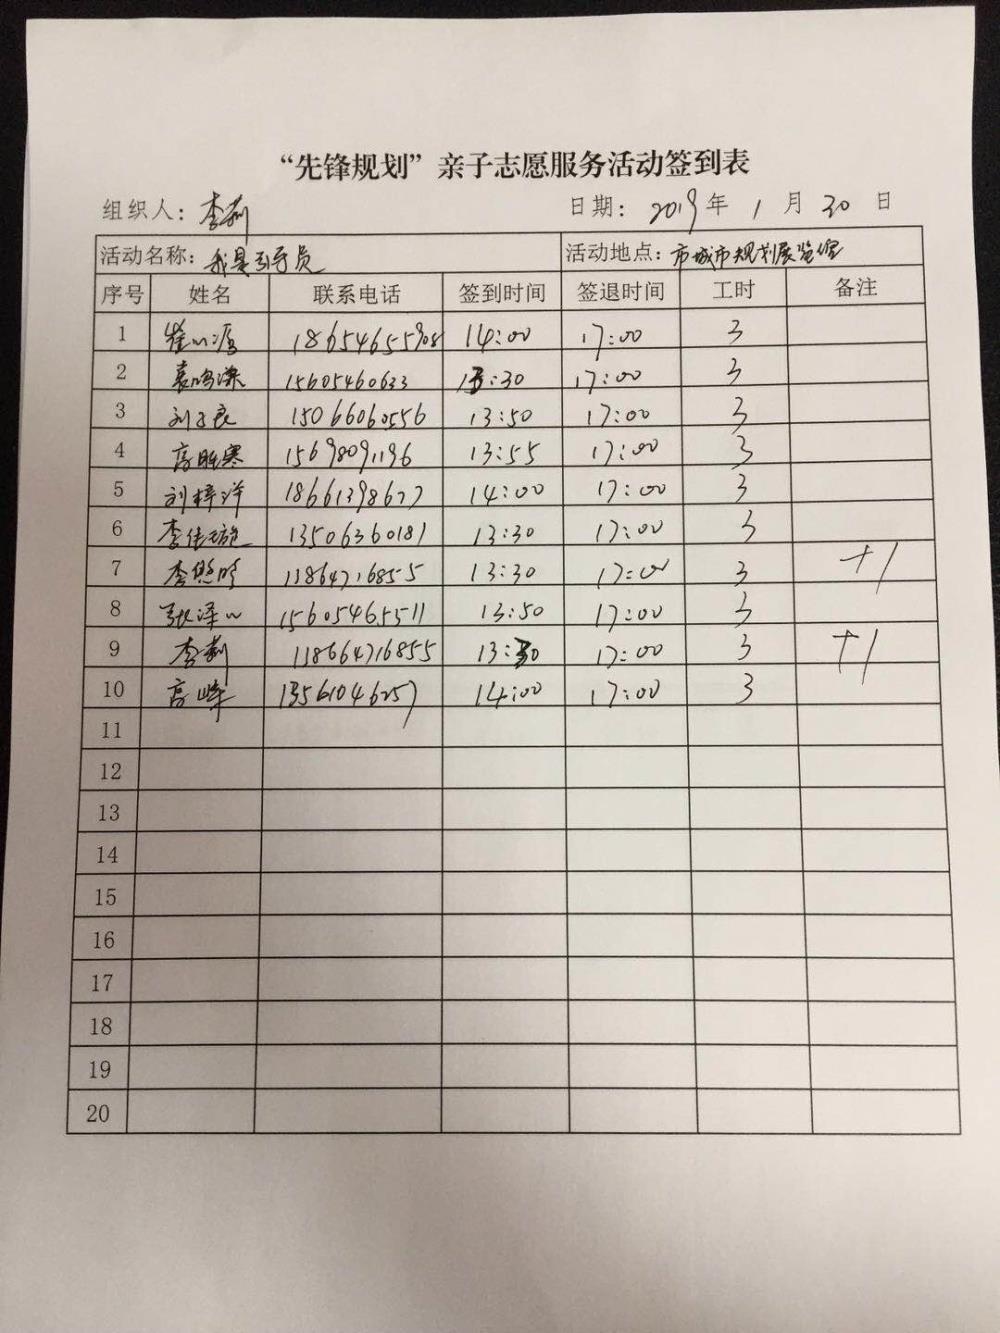 “先锋规划”亲子志愿服务活动签到表
组织人：李莉 日期：2019年1月30日
活动名称：我是引导员 活动地点：市城市规划展览馆
序号 姓名 联系电话 签到时间 签退时间 工时 备注
1 18654655908 14:00 17:00 3
2 15605460633 13:30 17:00 3
3 刘子良 15066060556 13:50 17:00 3
4 高胜寒 15698091196 13:55 17:00 3
5 刘梓洋 18661398677 14:00 17:00 3
6 李佳璇 13506360181 13:30 17:00 3
7 李悠吟 11864716855 13:30 17:00 3 +1
8 张泽 15605465511 13:50 17:00 3
9 李莉 118664716855 13:30 17:00 3 +1
10 高峰 13561046257 14:00 17:00 3
11
12
13
14
15
16
17
18
19
20